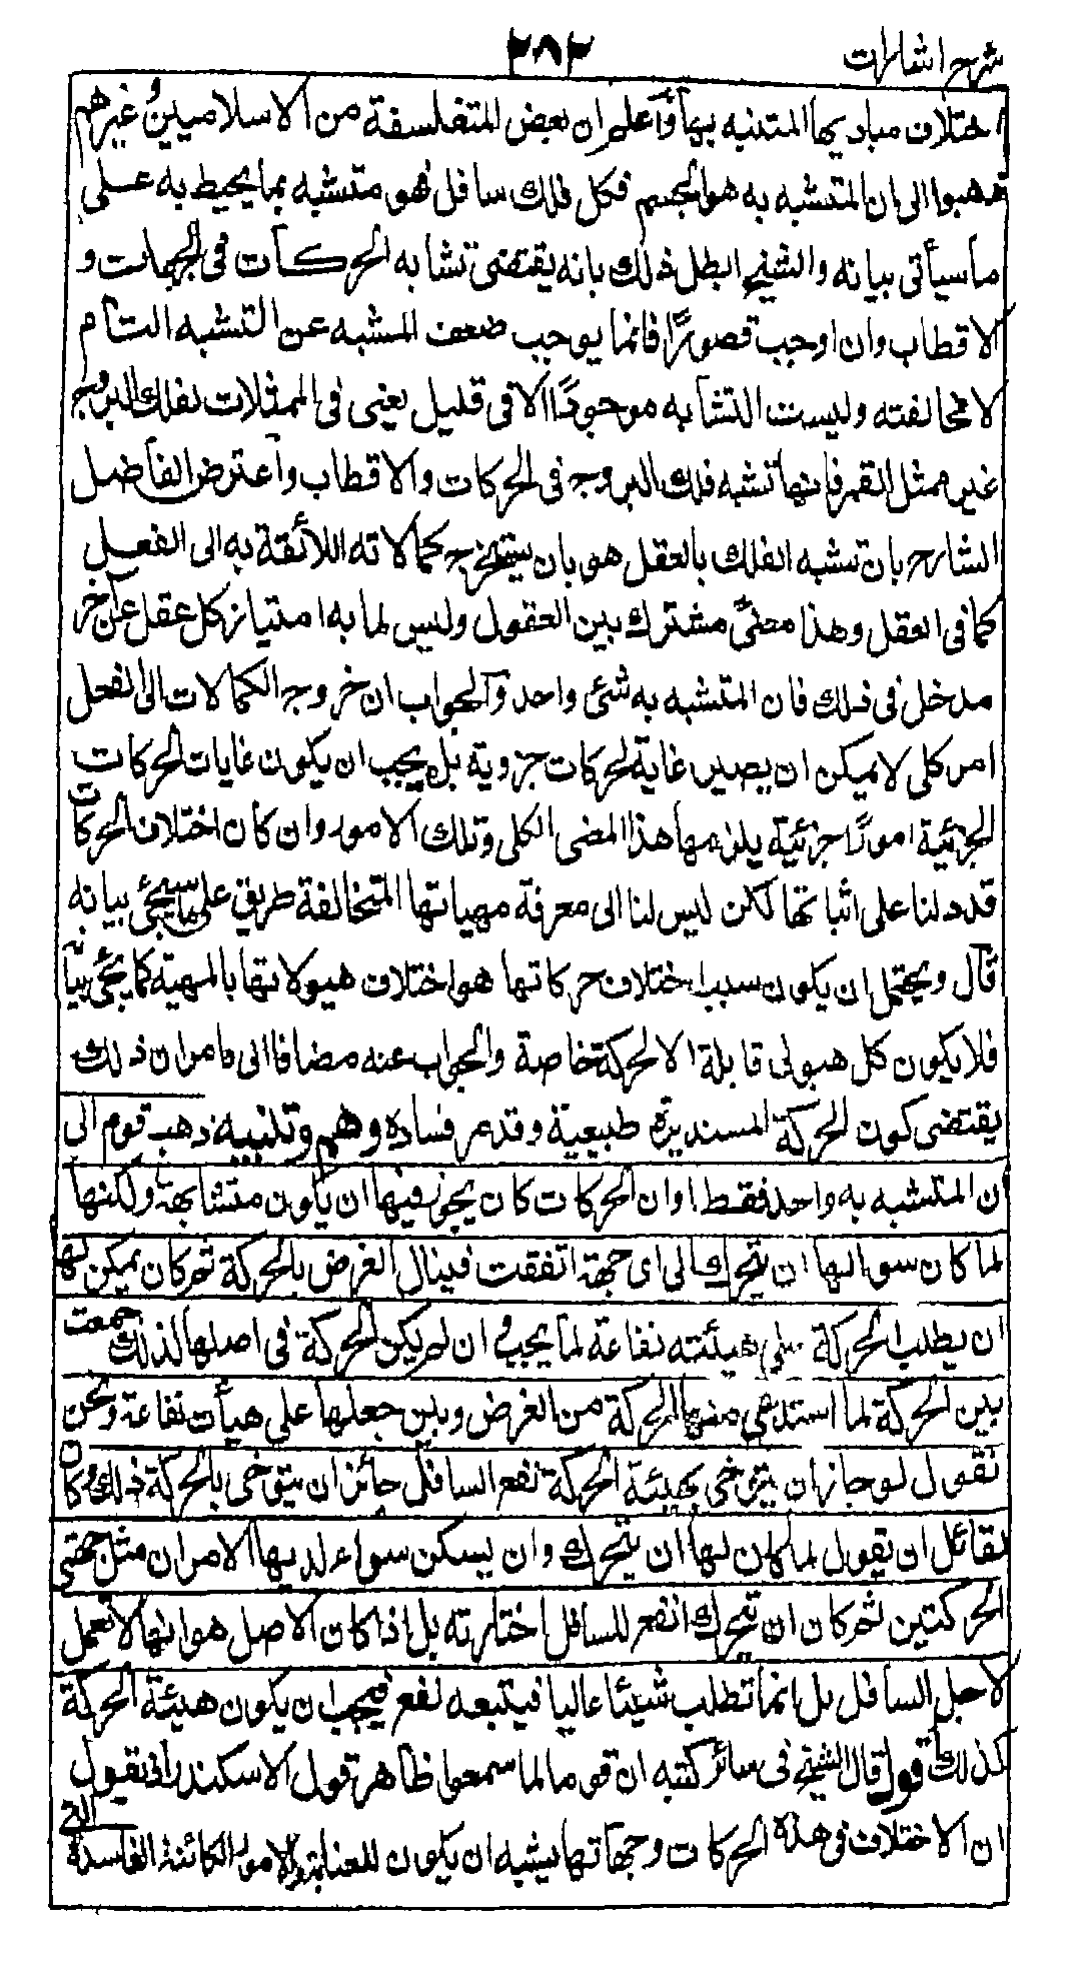 شرح اشارات
٢٨٢
اختلاف مباديها المتنبه بها وأعلم ان بعض المتفلسفة من الاسلاميين وغيرهم
ذهبوا الى ان المتشبه به هو الجسم فكل فلك سافل فهو متشبه بما يحيط به على
ما سيأتى بيانه والشيخ ابطل ذلك بانه يقتضى تشابه الحركات فى الجهات و
الاقطاب وان اوجب قصورًا فانما يوجب ضعف المشبه عن التشبه التام
لا مخالفته وليست التشابه موجودًا الا فى قليل يعنى فى الممثلات لفلك البروج
غير ممثل القمر فانها تشبه فلك البروج فى الحركات والاقطاب وأعترض الفاضل
الشارح بان تشبه الفلك بالعقل هو بان يستخرج كمالاته اللائقة به الى الفعل
كما فى العقل وهذا معنىً مشترك بين العقول وليس لما به امتياز كل عقل عن آخر
مدخل فى ذلك فان المتشبه به شئ واحد وآلجواب ان خروج الكمالات الى الفعل
امر كلى لا يمكن ان يصير غاية لحركات جزوية بل يجب ان يكون غايات الحركات
الجزئية امورًا جزئية يلزمها هذا المعنى الكلى وتلك الامور وان كان اختلاف الحركات
قد دلنا على اثباتها لكن ليس لنا الى معرفة مهياتها المتخالفة طريق على ما سيجئ بيانه
قآل ويحتمل ان يكون سبب اختلاف حركاتها هو اختلاف هيولاتها بالمهية كما يجئ بيانه
فلا يكون كل هيولى قابلة الا لحركة خاصة والجواب عنه مضافا الى ما مر ان ذلك
يقتضى كون الحركة المستديرة طبيعية وقد مر فساده وهم وتنبيه ذهب قوم الى
ان المتشبه به واحد فقط وان الحركات كان يجوز فيها ان يكون متشابهة ولكنها
لما كان سواء لها ان يتحرك الى اى جهة اتفقت فينال الغرض بالحركة ثم كان يمكن لها
ان يطلب الحركة على هيئته نفاعة لما يجب وان لم يكن الحركة فى اصلها لذلك جمعت
بين الحركة لما استدعى منها الحركة من الغرض وبين جعلها على هيأت نفاعة ونحن
نقول لو جاز ان يتوخى بهيئة الحركة نفع السافل جائز ان يتوخى بالحركة ذلك وكان
لقائل ان يقول لما كان لها ان يتحرك وان يسكن سواء لديها الامران مثل جهتى
الحركتين ثم كان ان تحرك انفع للسافل اختارته بل اذا كان الاصل هو انها لا تعمل
لاجل السافل بل انما تطلب شيئا عاليا فيتبعه نفع فيجب ان يكون هيئة الحركة
كذلك قول قال الشيخ فى سائر كتبه ان قوما لما سمعوا ظاهر قول الاسكندر اذ يقول
ان الاختلاف فى هذه الحركات وجهاتها يشبه ان يكون للعناية بالامور الكائنة الفاسدة التى